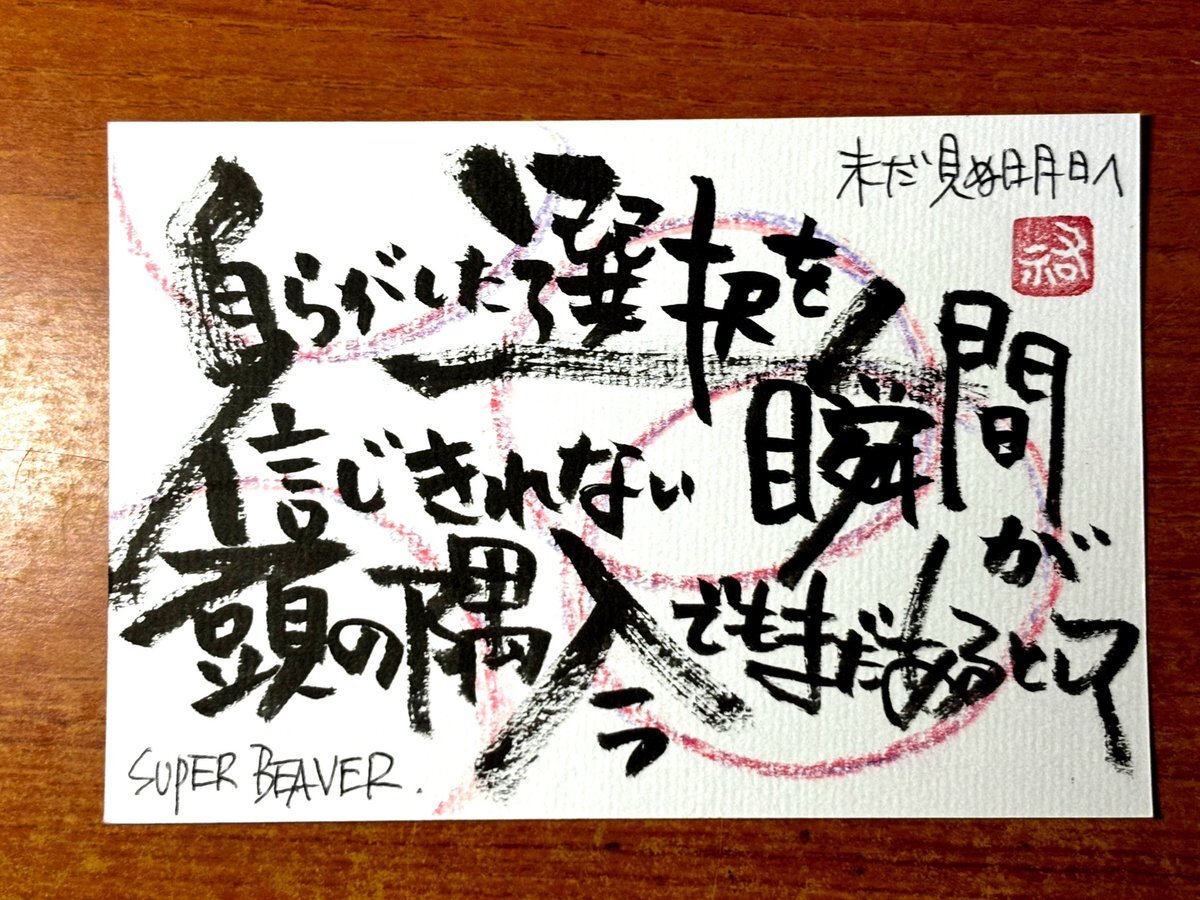 未だ見ぬ明日へ
自らがした選択を
信じきれない瞬間が
頭の隅今でもまだあるとして
SUPER BEAVER.